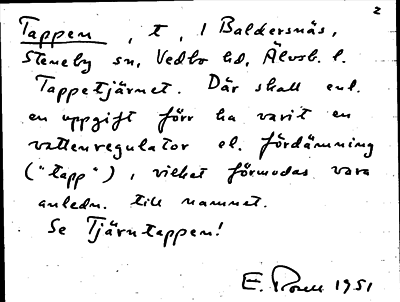 2
Tappen, t, i Baldersnäs,
Steneby sn, Vedbo hd, Älvsb. l.
Tappetjärnet. Där skall enl.
en uppgift förr ha varit en
vattenregulator el. fördämning
("tapp"), vilket förmodas vara
anledn. till namnet.
Se Tjärntappen!
E. 1951